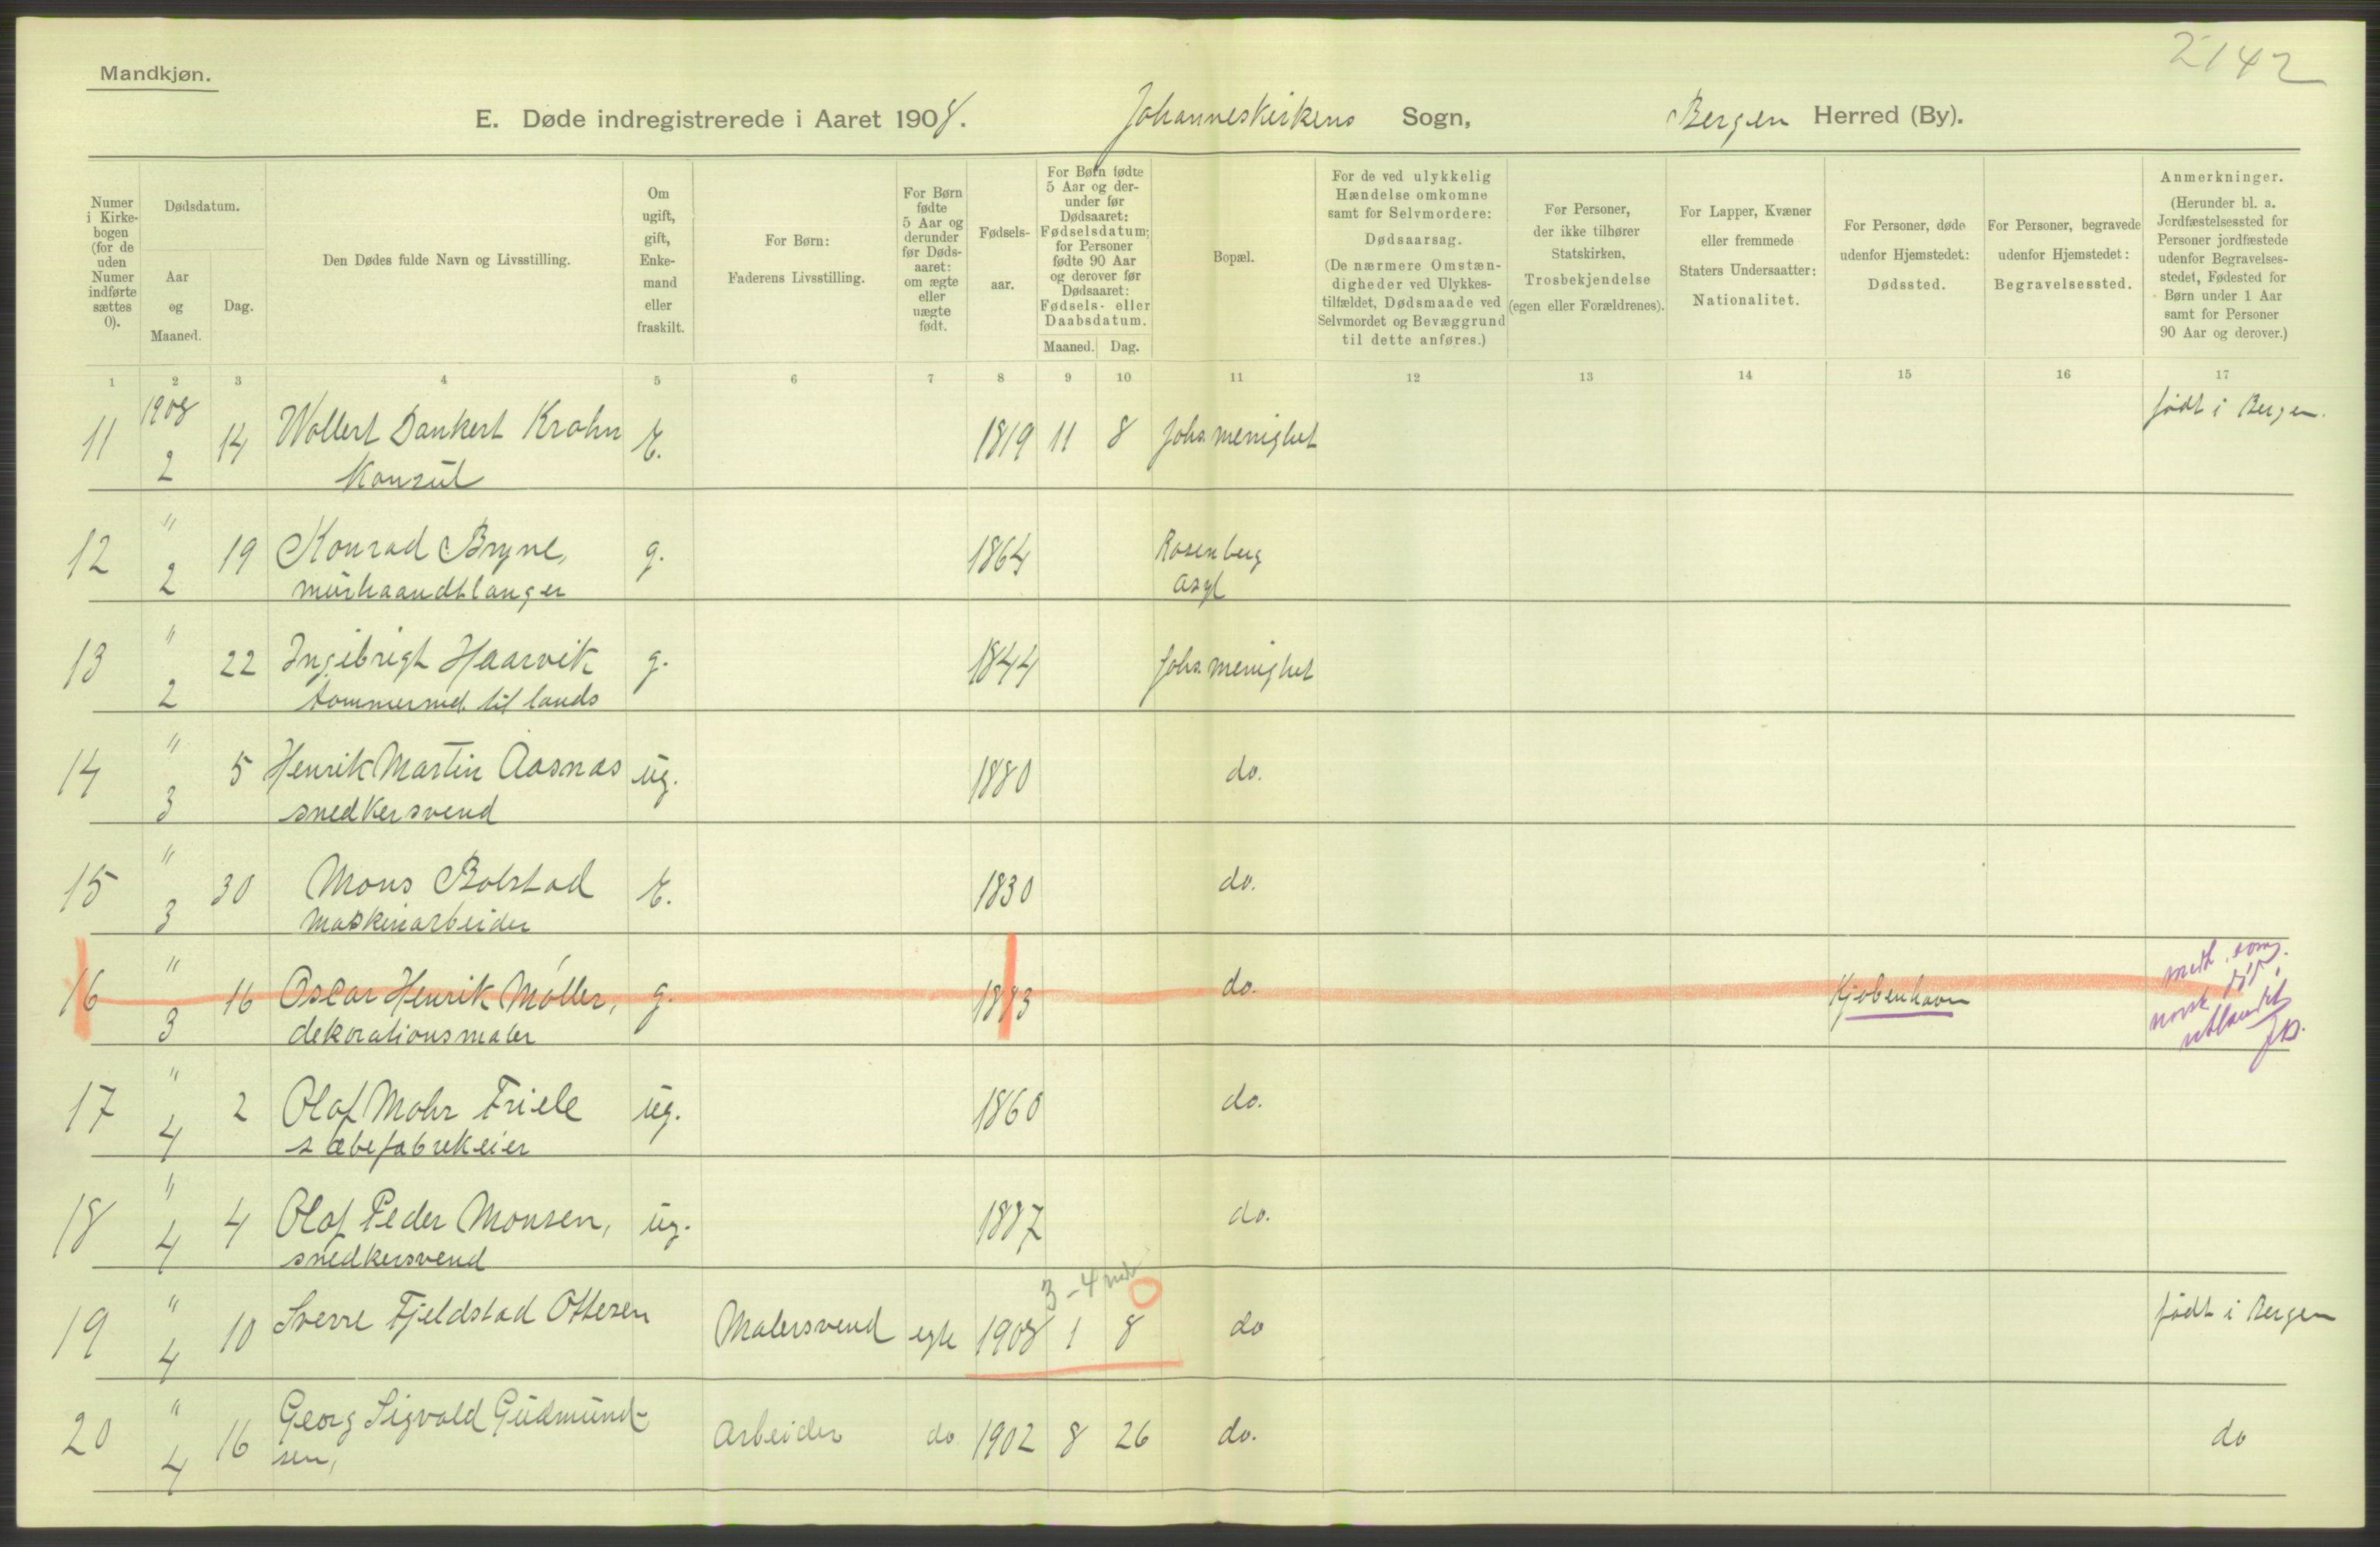 2142
Mandkjøn.
E. Døde indregistrerede i Aaret 1908. Johanneskirkens Sogn, Bergen Herred (By).
Numer i Kirkebogen (for de uden Numer indførte sættes 0).
Dødsdatum.
Aar og Maaned.
Dag.
Den Dødes fulde Navn og Livsstilling.
Om ugift, gift, Enkemand eller fraskilt.
For Børn: Faderens Livsstilling.
For Børn fødte 5 Aar og derunder før Dødsaaret: om ægte eller uægte født.
Fødselsaar.
For Børn fødte 5 Aar og derunder før Dødsaaret: Fødselsdatum; for Personer fødte 90 Aar og derover før Dødsaaret: Fødsels- eller Daabsdatum.
Maaned. Dag.
Bopæl.
For de ved ulykkelig Hændelse omkomne samt for Selvmordere: Dødsaarsag. (De nærmere Omstændigheder ved Ulykkestilfældet, Dødsmaade ved Selvmordet og Bevæggrund til dette anføres.)
For Personer, der ikke tilhører Statskirken, Trosbekjendelse (egen eller Forældrenes).
For Lapper, Kvæner eller fremmede Staters Undersaatter: Nationalitet.
For Personer, døde udenfor Hjemstedet: Dødssted.
For Personer, begravede udenfor Hjemstedet: Begravelsessted.
Anmerkninger. (Herunder bl. a. Jordfæstelsessted for Personer jordfæstede udenfor Begravelsesstedet, Fødested for Børn under 1 Aar samt for Personer 90 Aar og derover.)
1 2 3 4 5 6 7 8 9 10 11 12 13 14 15 16 17
11 1908 2 14 Wollert Dankert Krohn E. 1819 11 8 Johs. menighet født i Bergen.
Konsul
12 " 2 19 Konrad Bryne, g. 1864 Rosenberg
murhaandtlanger Asyl
13 " 2 22 Ingebrigt Haarvik g. 1844 Johs. menighet
tømmermd. til lands
14 " 3 5 Henrik Martin Aasnæs ug. 1880 do.
snedkersvend
15 " 3 30 Mons Bolstad E. 1830 do.
Maskinarbeider
16 " 3 16 Oscar Henrik Møller, g. 1883 do. Kjøbenhavn medt. som
dekorationsmaler norsk død i utlandet
17 " 4 2 Olaf Mohr Friele ug. 1860 do.
sæbefabrikeier
18 " 4 4 Olaf Peder Monsen, ug. 1887 do.
snedkersvend
3-4 mdr 0
19 " 4 10 Sverre Fjeldstad Ottesen Malersvend egte 1908 1 8 do født i Bergen
20 " 4 16 Georg Sigvald Gudmund- Arbeider do 1902 8 26 do. do
sen,